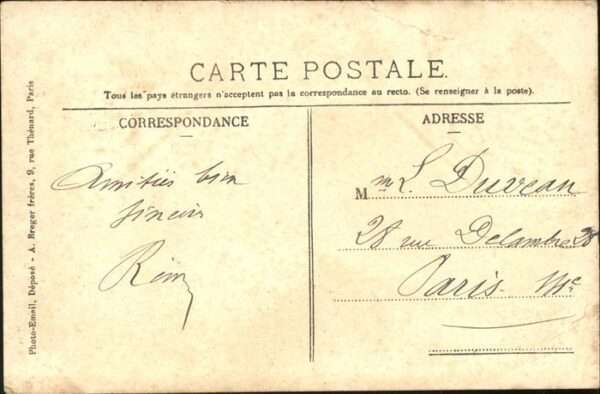 CARTE POSTALE.
Tous les pays étrangers n'acceptent pas la correspondance au recto. (Se renseigner à la poste).
CORRESPONDANCE
ADRESSE
Amitiés bien
sincères
Rémy
M me L. Duveau
28 rue Delambre 28
Paris
Photo-Email, Déposé - A. Breger frères, 9, rue Thénard, Paris